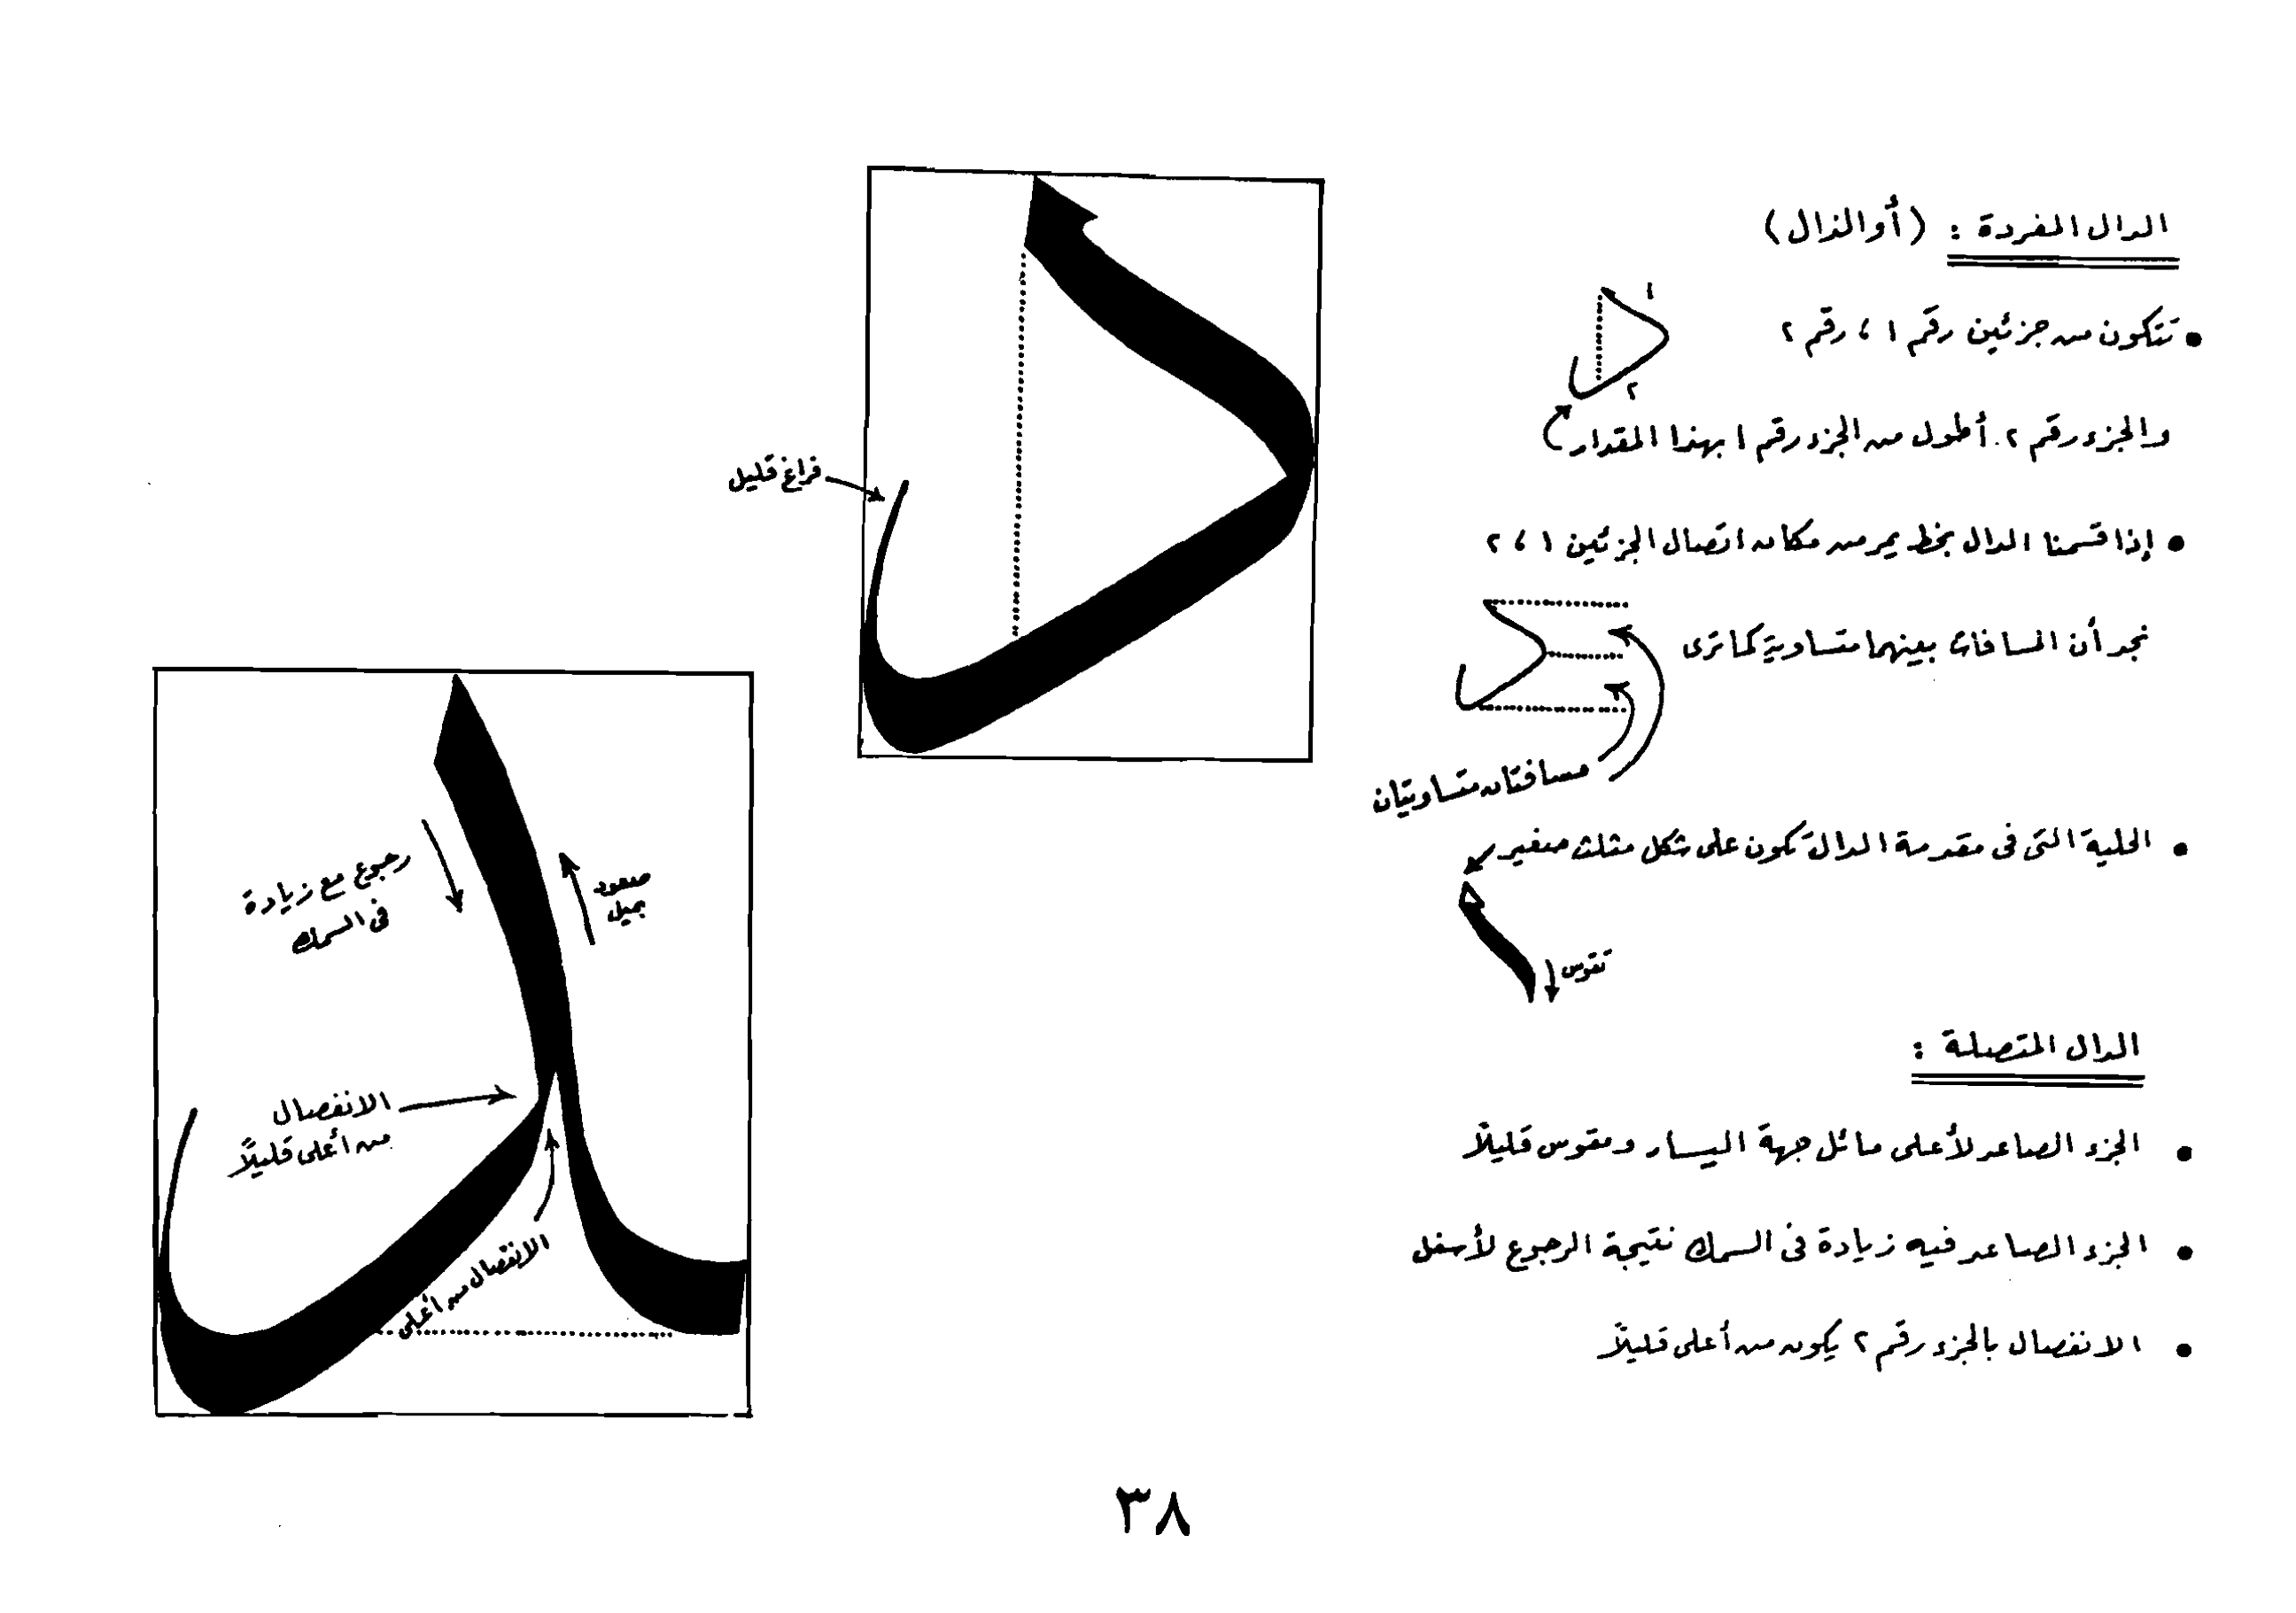 الدال المفردة : (أو الذال)
• تتكون من جزئين رقم ١ ، رقم ٢
١
٢
والجزء رقم ٢ . أطول من الجزء رقم ١ بهذا المقدار
• إذا قسمنا الدال بخط يمر من مكان اتصال الجزئين ١ ، ٢
نجد أن المسافات بينهما متساوية كما ترى
مسافتان متساويتان
• الحلية التى فى مقدمة الدال تكون على شكل مثلث صغير
تقوس
الدال المتصلة :
• الجزء الصاعد لأعلى مائل جهة اليسار ومقوس قليلاً
• الجزء الصاعد فيه زيادة فى السمك نتيجة الرجوع لأسفل
• الانفصال بالجزء رقم ٢ يكون من أعلى قليلاً
فراغ قليل
صعود
بميل
رجوع مع زيادة
فى السمك
الانفصال
من أعلى قليلاً
الانفصال من أعلى
٣٨